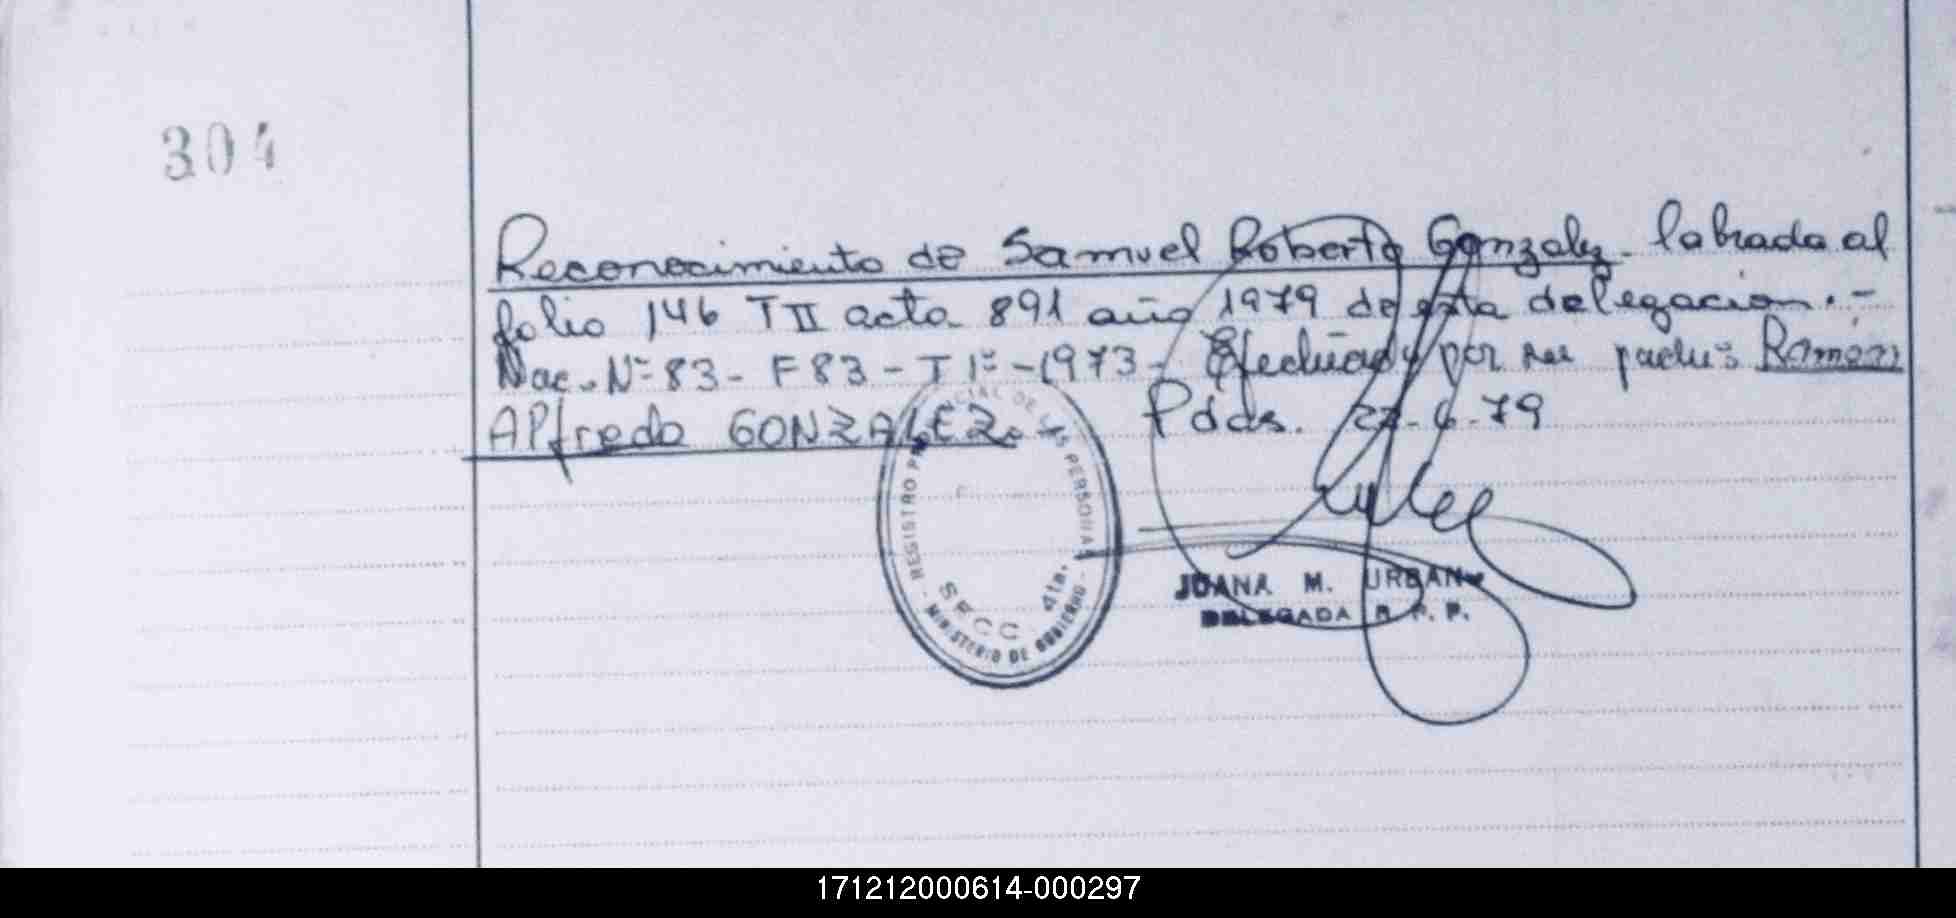 304
Reconocimiento de Samuel Roberto Gonzalez - labrada al
folio 146 T II acta 891 año 1979 de esta delegacion.-
Nac. Nº 83 - F 83 - T 1º - 1973 - Efectuado por su padre: Ramón
Alfredo GONZALEZ.-
Pdas. 22-6-79
REGISTRO PROVINCIAL DE LAS PERSONAS
SECC. 4ta.
- MINISTERIO DE GOBIERNO -
JUANA M. URBAN
DELEGADA R. P. P.
171212000614-000297